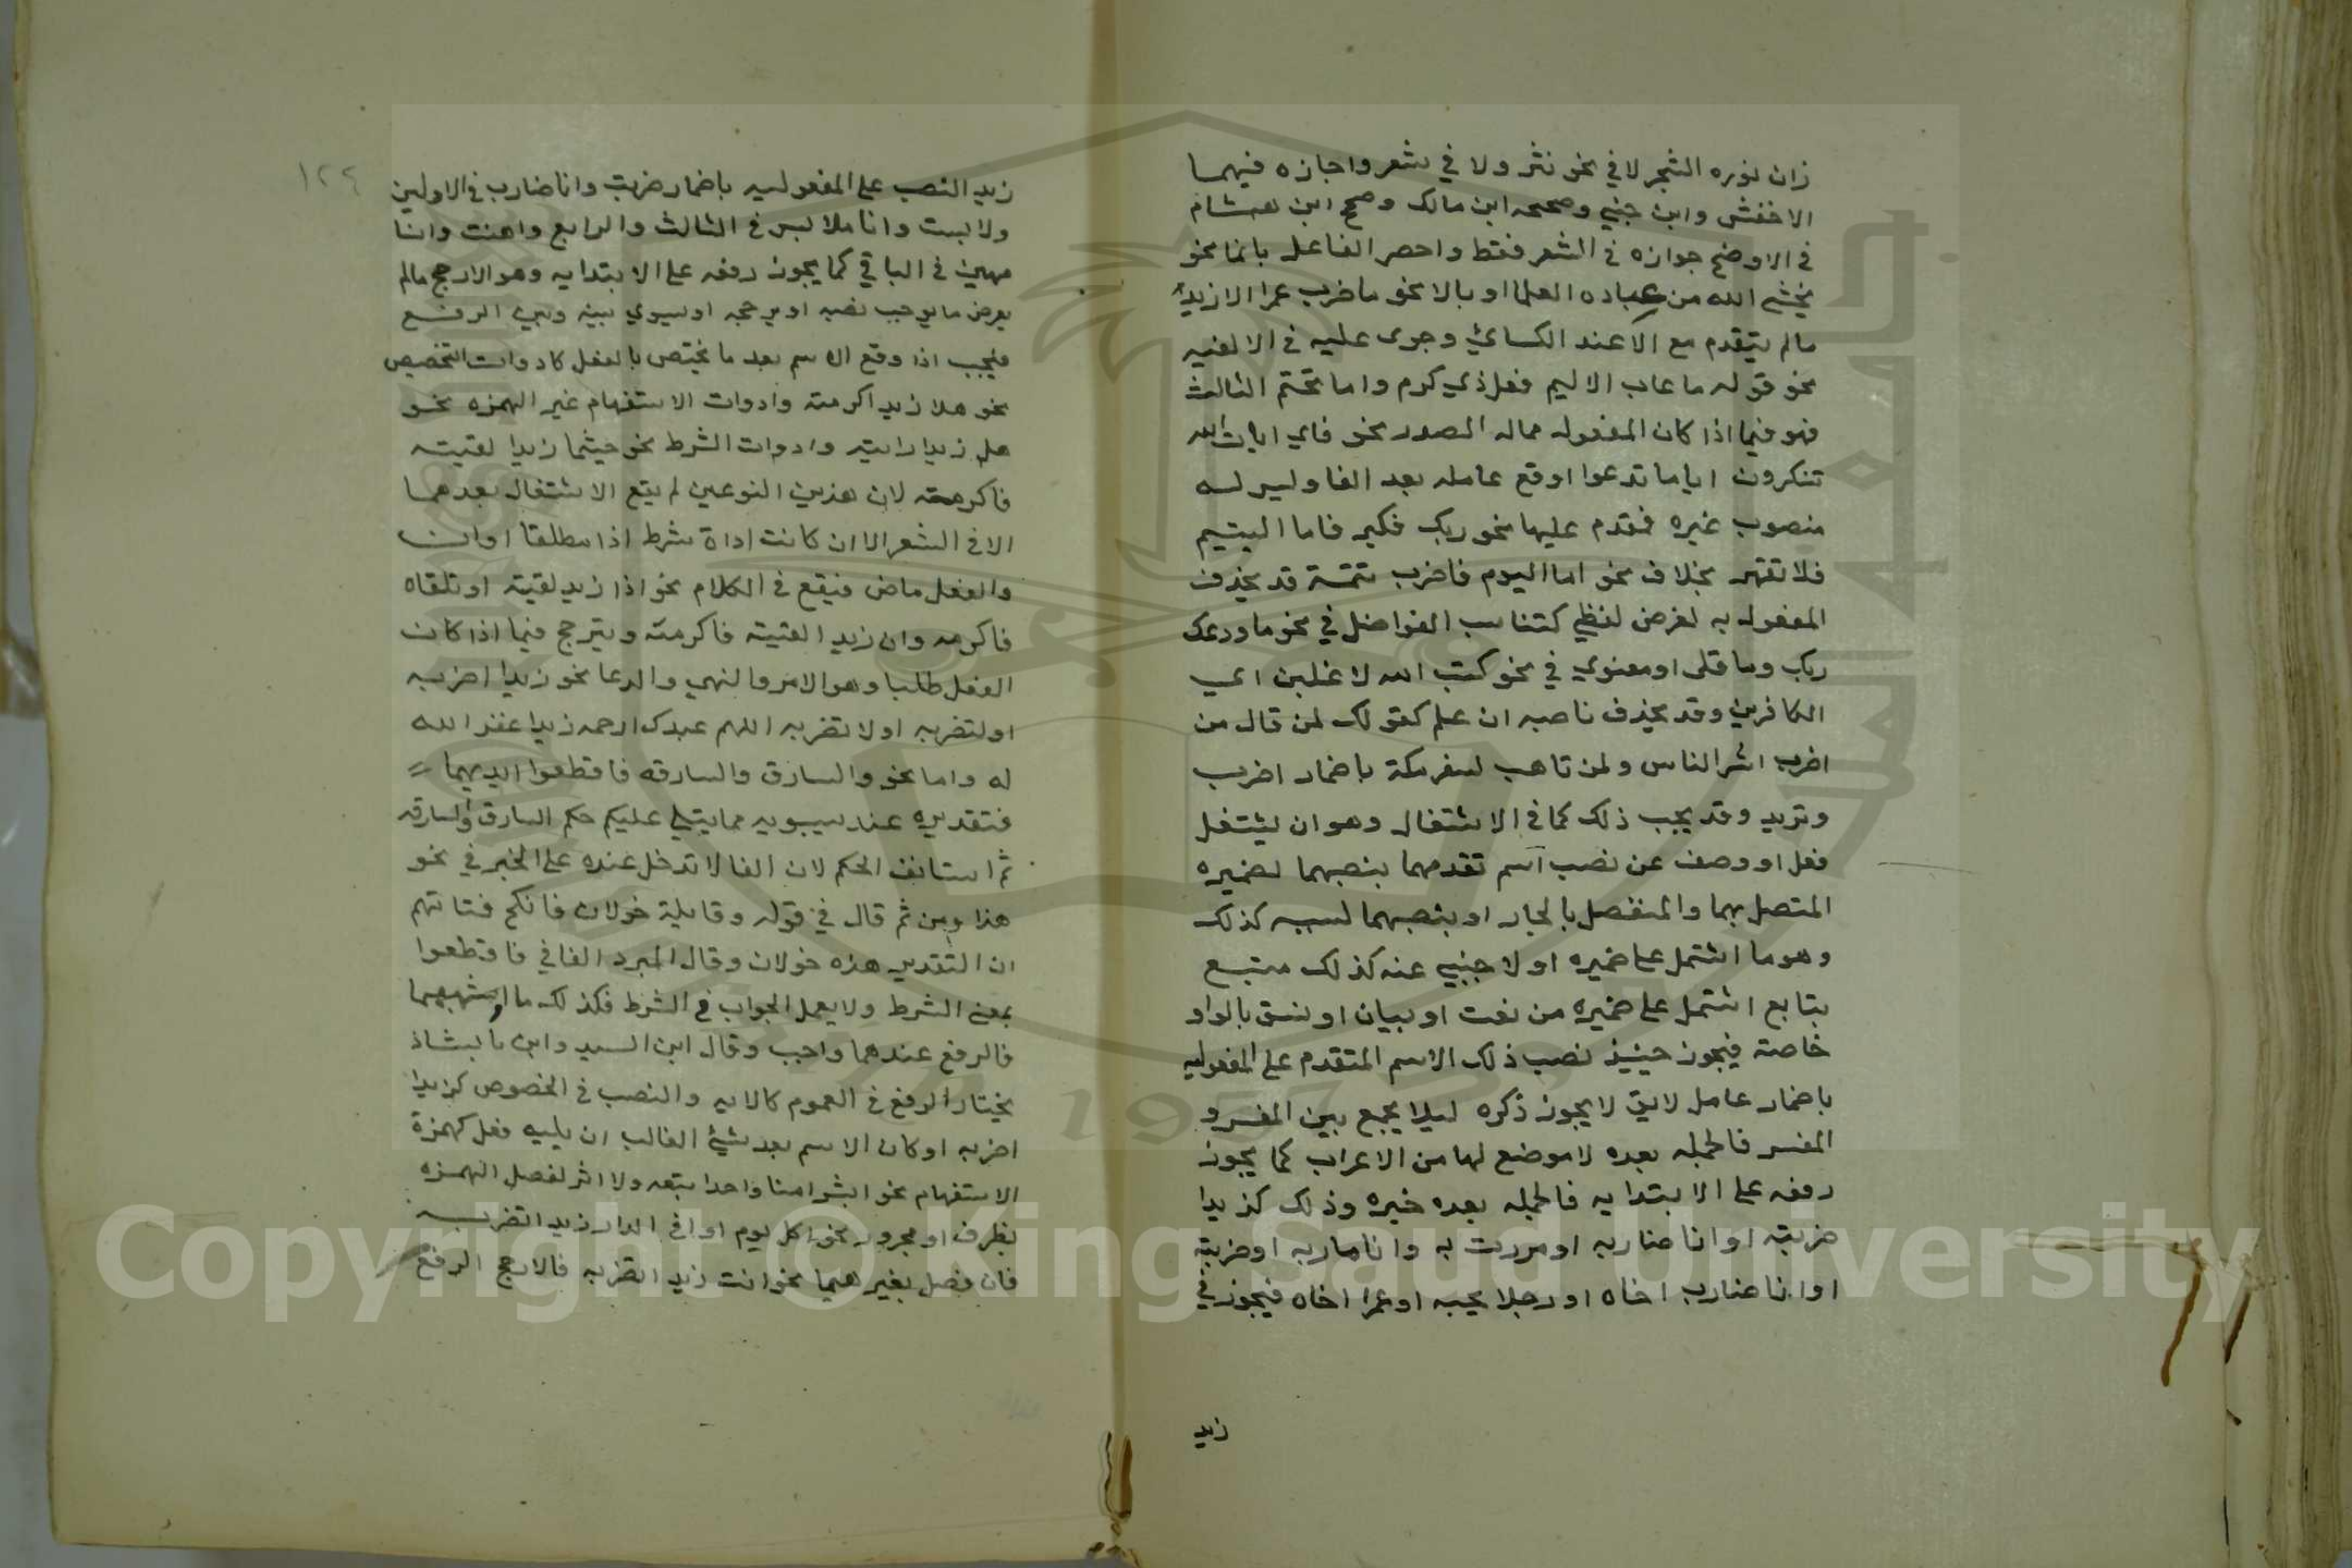 زان نوره الشجر لا في نحو نثر ولا في شعر واجازه فيهما
الاخفش وابن جني وصححه ابن مالك وصحح ابن هشام
في الاوضح جوازه في الشعر فقط واحصر الفاعل بانما نحو
يخشى الله من عباده العلما او بالا نحو ما ضرب عمرا الا زيد
مالم يتقدم مع الا عند الكسائي وجرى عليه في الالفيه
نحو قوله ما عاب الا ليم فعل ذي كرم واما تحتم الثالث
فهو فيما اذا كان المفعول مماله الصدر نحو فاي ايات الله
تنكرون اياما تدعوا او وقع عامله بعد الفا وليس له
منصوب غيره فقدم عليها نحو ربك فكبر فاما اليتيم
فلا تقهر بخلاف نحو اما اليوم فاضرب تتمة قد يحذف
المفعول به لغرض لفظي كتناسب الفواضل في نحو ما ودعك
ربك وما قلى او معنوي في نحو كتب الله لاغلبن اي
الكافرين وقد يحذف ناصبه ان علم كقولك لمن قال من
اضرب اشر الناس ولمن تاهب لسفر مكة باضمار اضرب
وتريد وقد يجب ذلك كما في الاشتغال وهو ان يشتغل
فعل او وصف عن نصب اسم تقدمهما بنصبهما لضميره
المتصل بهما والمنفصل بالجار او بنصبهما لسببه كذلك
وهو ما اشتمل على ضميره او لاجنبي عنه كذلك متبع
بتابع اشتمل على ضميره من نعت او بيان او نسق بالواو
خاصة فيجوز حينيذ نصب ذلك الاسم المتقدم على المفعوليه
باضمار عامل لايق لا يجوز ذكره ليلا يجمع بين المفسر و
المفسر فالجمله بعده لا موضع لها من الاعراب كما يجوز
رفعه على الابتدايه فالجمله بعده خبره وذلك كزيدا
ضربته او انا ضاربه او مررت به وانا مار به او ضربته
او انا ضارب اخاه او رجلا يحبه او عمرا اخاه فيجوز في
زيد
١٢٩
زيد النصب على المفعوليه باضمار ضربت وانا ضارب في الاولين
ولابست وانا ملابس في الثالث والرابع واهنت وانا
مهين في الباقي كما يجوز رفعه على الابتدايه وهو الارجح مالم
يعرض ما يوجب نصبه او يرجحه او يسوي بينه وبين الرفع
فيجب اذا وقع الاسم بعد ما يختص بالفعل كادوات التحضيض
نحو هلا زيدا اكرمته وادوات الاستفهام غير الهمزه نحو
هل زيدا رايته وادوات الشرط نحو حيثما زيدا لقيته
فاكرمته لان هذين النوعين لم يقع الاشتغال بعدهما
الا في الشعر الا ان كانت اداة شرط اذا مطلقا او ان
والفعل ماض فيقع في الكلام نحو اذا زيد لقيته او تلقاه
فاكرمه وان زيدا لقيته فاكرمته ويترجح فيما اذا كان
الفعل طلبا وهو الامر والنهي والدعا نحو زيدا اضربه
او لتضربه او لا تضربه اللهم عبدك ارحمه زيدا غفر الله
له واما نحو والسارق والسارقه فاقطعوا ايديهما
فتقديره عند سيبويه مما يتلى عليكم حكم السارق والسارقه
ثم استانف الحكم لان الفا لا تدخل عنده على الخبر في نحو
هذا ومن ثم قال في قوله وقايلة خولان فانكح فتاتهم
ان التقدير هذه خولان وقال المبرد الفا في فاقطعوا
بمعنى الشرط ولا يعمل الجواب في الشرط فكذلك ما اشبههما
فالرفع عندهما واجب وقال ابن السيد وابن بابشاذ
يختار الرفع في العموم كالايه والنصب في الخصوص كزيدا
اضربه او كان الاسم بعد شيء الغالب ان يليه فعل كهمزة
الاستفهام نحو ابشرا منا واحدا نتبعه ولا اثر لفصل الهمزه
بظرف او مجرور نحو اكل يوم او افي الدار زيدا تضربه
فان فصل بغيرهما نحو انت زيد تضربه فالارجح الرفع
Copyright © King Saud University
1957